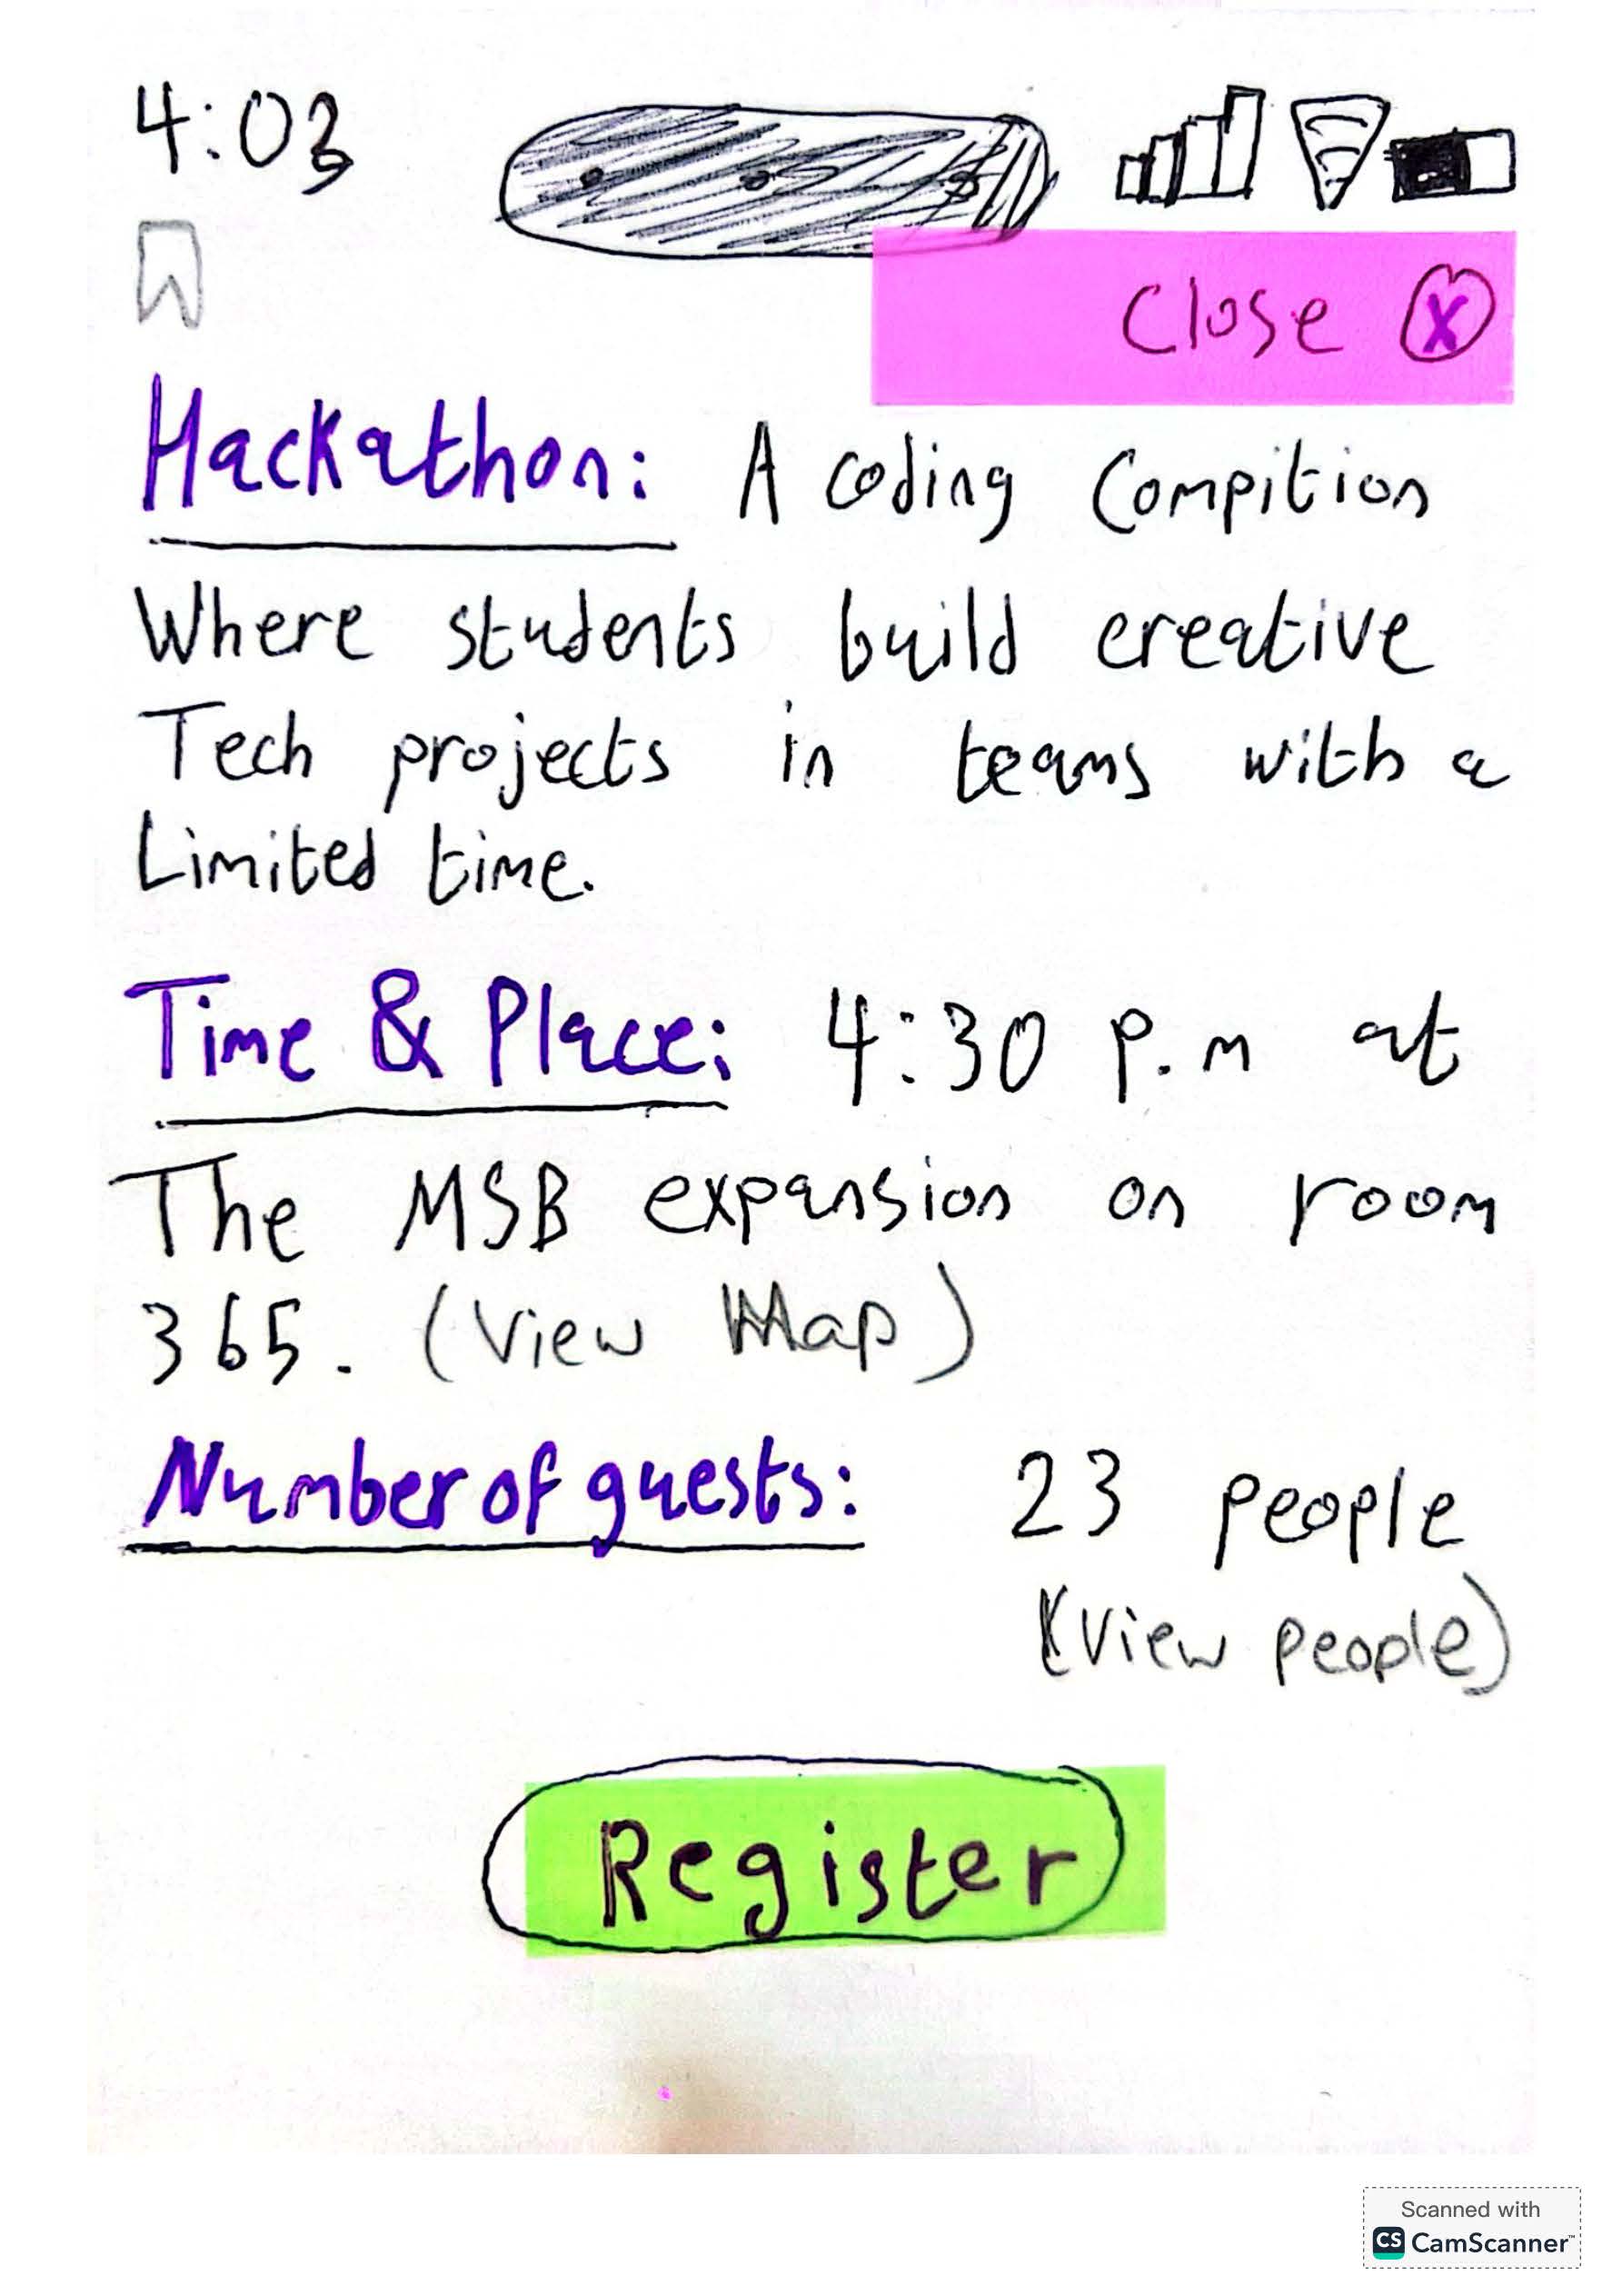 4:03
Close X
Hackathon: A coding Compition
Where students build creative
Tech projects in teams with a
Limited time.
Time & Place: 4:30 p.m at
The MSB expansion on room
365. (View Map)
Number of guests: 23 people
(View people)
Register
Scanned with
CS CamScanner™